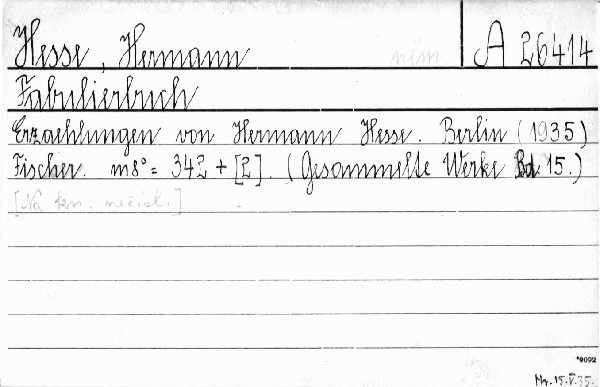 Hesse, Hermann něm A 26414
Fabulierbuch
Erzaehlungen von Hermann Hesse. Berlin (1935)
Fischer. m8° = 342 + [2]. (Gesammelte Werke Bd. 15.)
[Na kn. nečísl.]
*9092
Mr. 15.V.35.